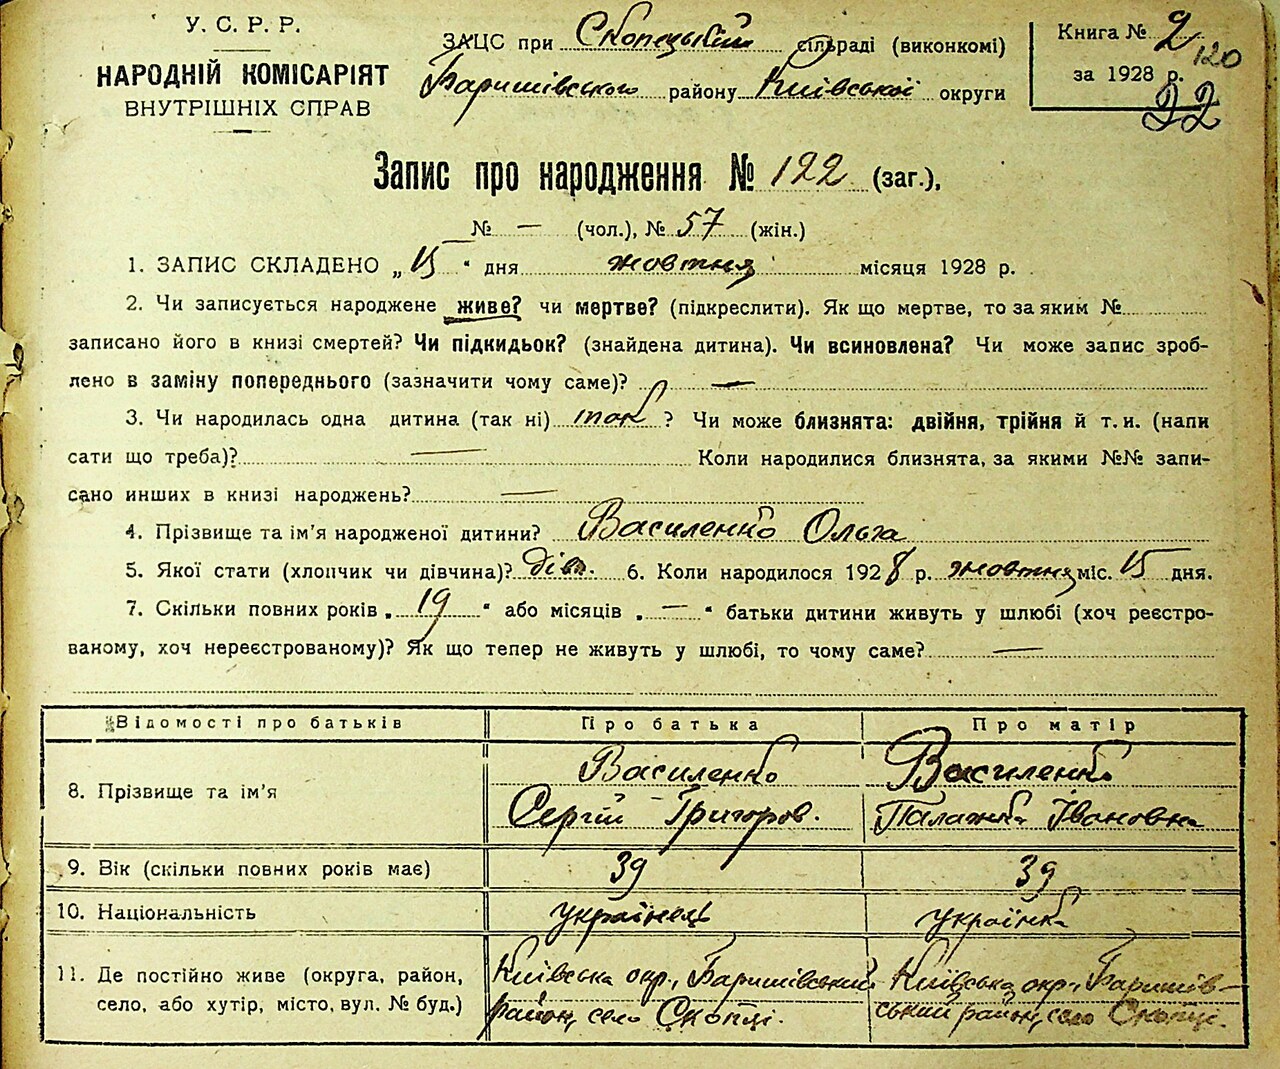 У. С. Р. Р.
НАРОДНІЙ КОМІСАРІЯТ
ВНУТРІШНІХ СПРАВ
ЗАЦС при Скопецькій сільраді (виконкомі)
Баришівського району Київської округи
Книга № 2
120
за 1928 р.
22
Запис про народження № 122 (заг.),
№ — (чол.), № 57 (жін.)
1. ЗАПИС СКЛАДЕНО „15" дня жовтня місяця 1928 р.
2. Чи записується народжене живе? чи мертве? (підкреслити). Як що мертве, то за яким №
записано його в книзі смертей? Чи підкидьок? (знайдена дитина). Чи всиновлена? Чи може запис зроб-
лено в заміну попереднього (зазначити чому саме)? —
3. Чи народилась одна дитина (так ні) так ? Чи може близнята: двійня, трійня й т. и. (напи
сати що треба)? — Коли народилися близнята, за якими №№ запи-
сано инших в книзі народжень? —
4. Прізвище та ім'я народженої дитини? Василенко Ольга
5. Якої стати (хлопчик чи дівчина)? дівч. 6. Коли народилося 1928 р. жовтня міс. 15 дня.
7. Скільки повних років „19" або місяців „—" батьки дитини живуть у шлюбі (хоч реєстро-
ваному, хоч нереєстрованому)? Як що тепер не живуть у шлюбі, то чому саме? —
Відомості про батьків Про батька Про матір
8. Прізвище та ім'я
Василенко
Сергій Григоров.
Василенко
Палажка Івановна
9. Вік (скільки повних років має) 39 39
10. Національність українець українка
11. Де постійно живе (округа, район,
село, або хутір, місто, вул. № буд.)
Київська окр., Баришівський
район, село Скопці.
Київська окр., Баришів-
ський район, село Скопці.